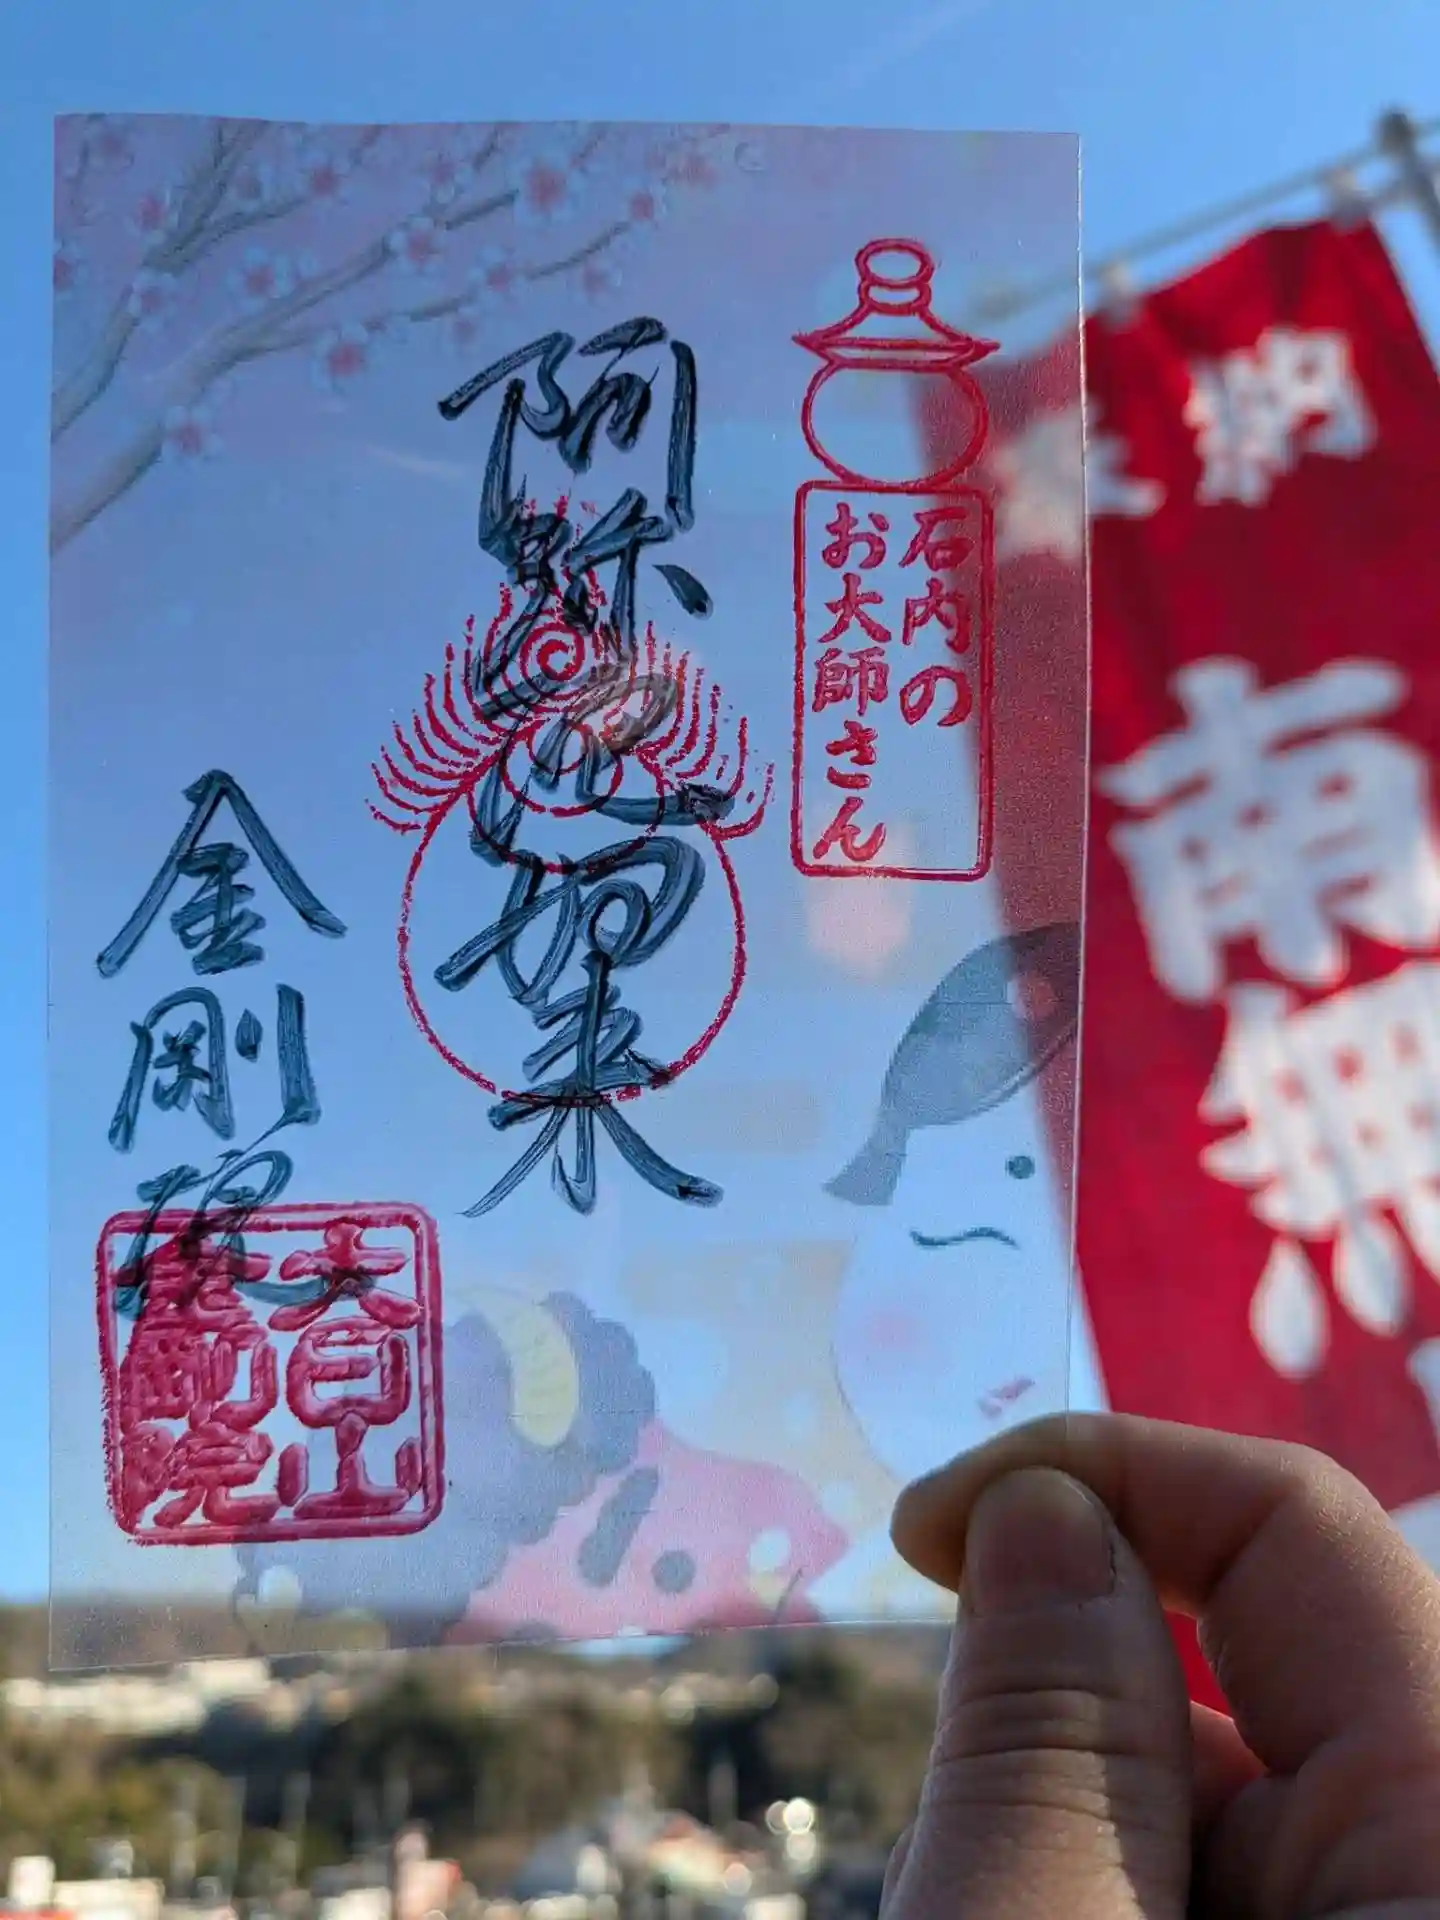 石内の
お大師さん
阿弥陀如来
金剛院
奉納
南無